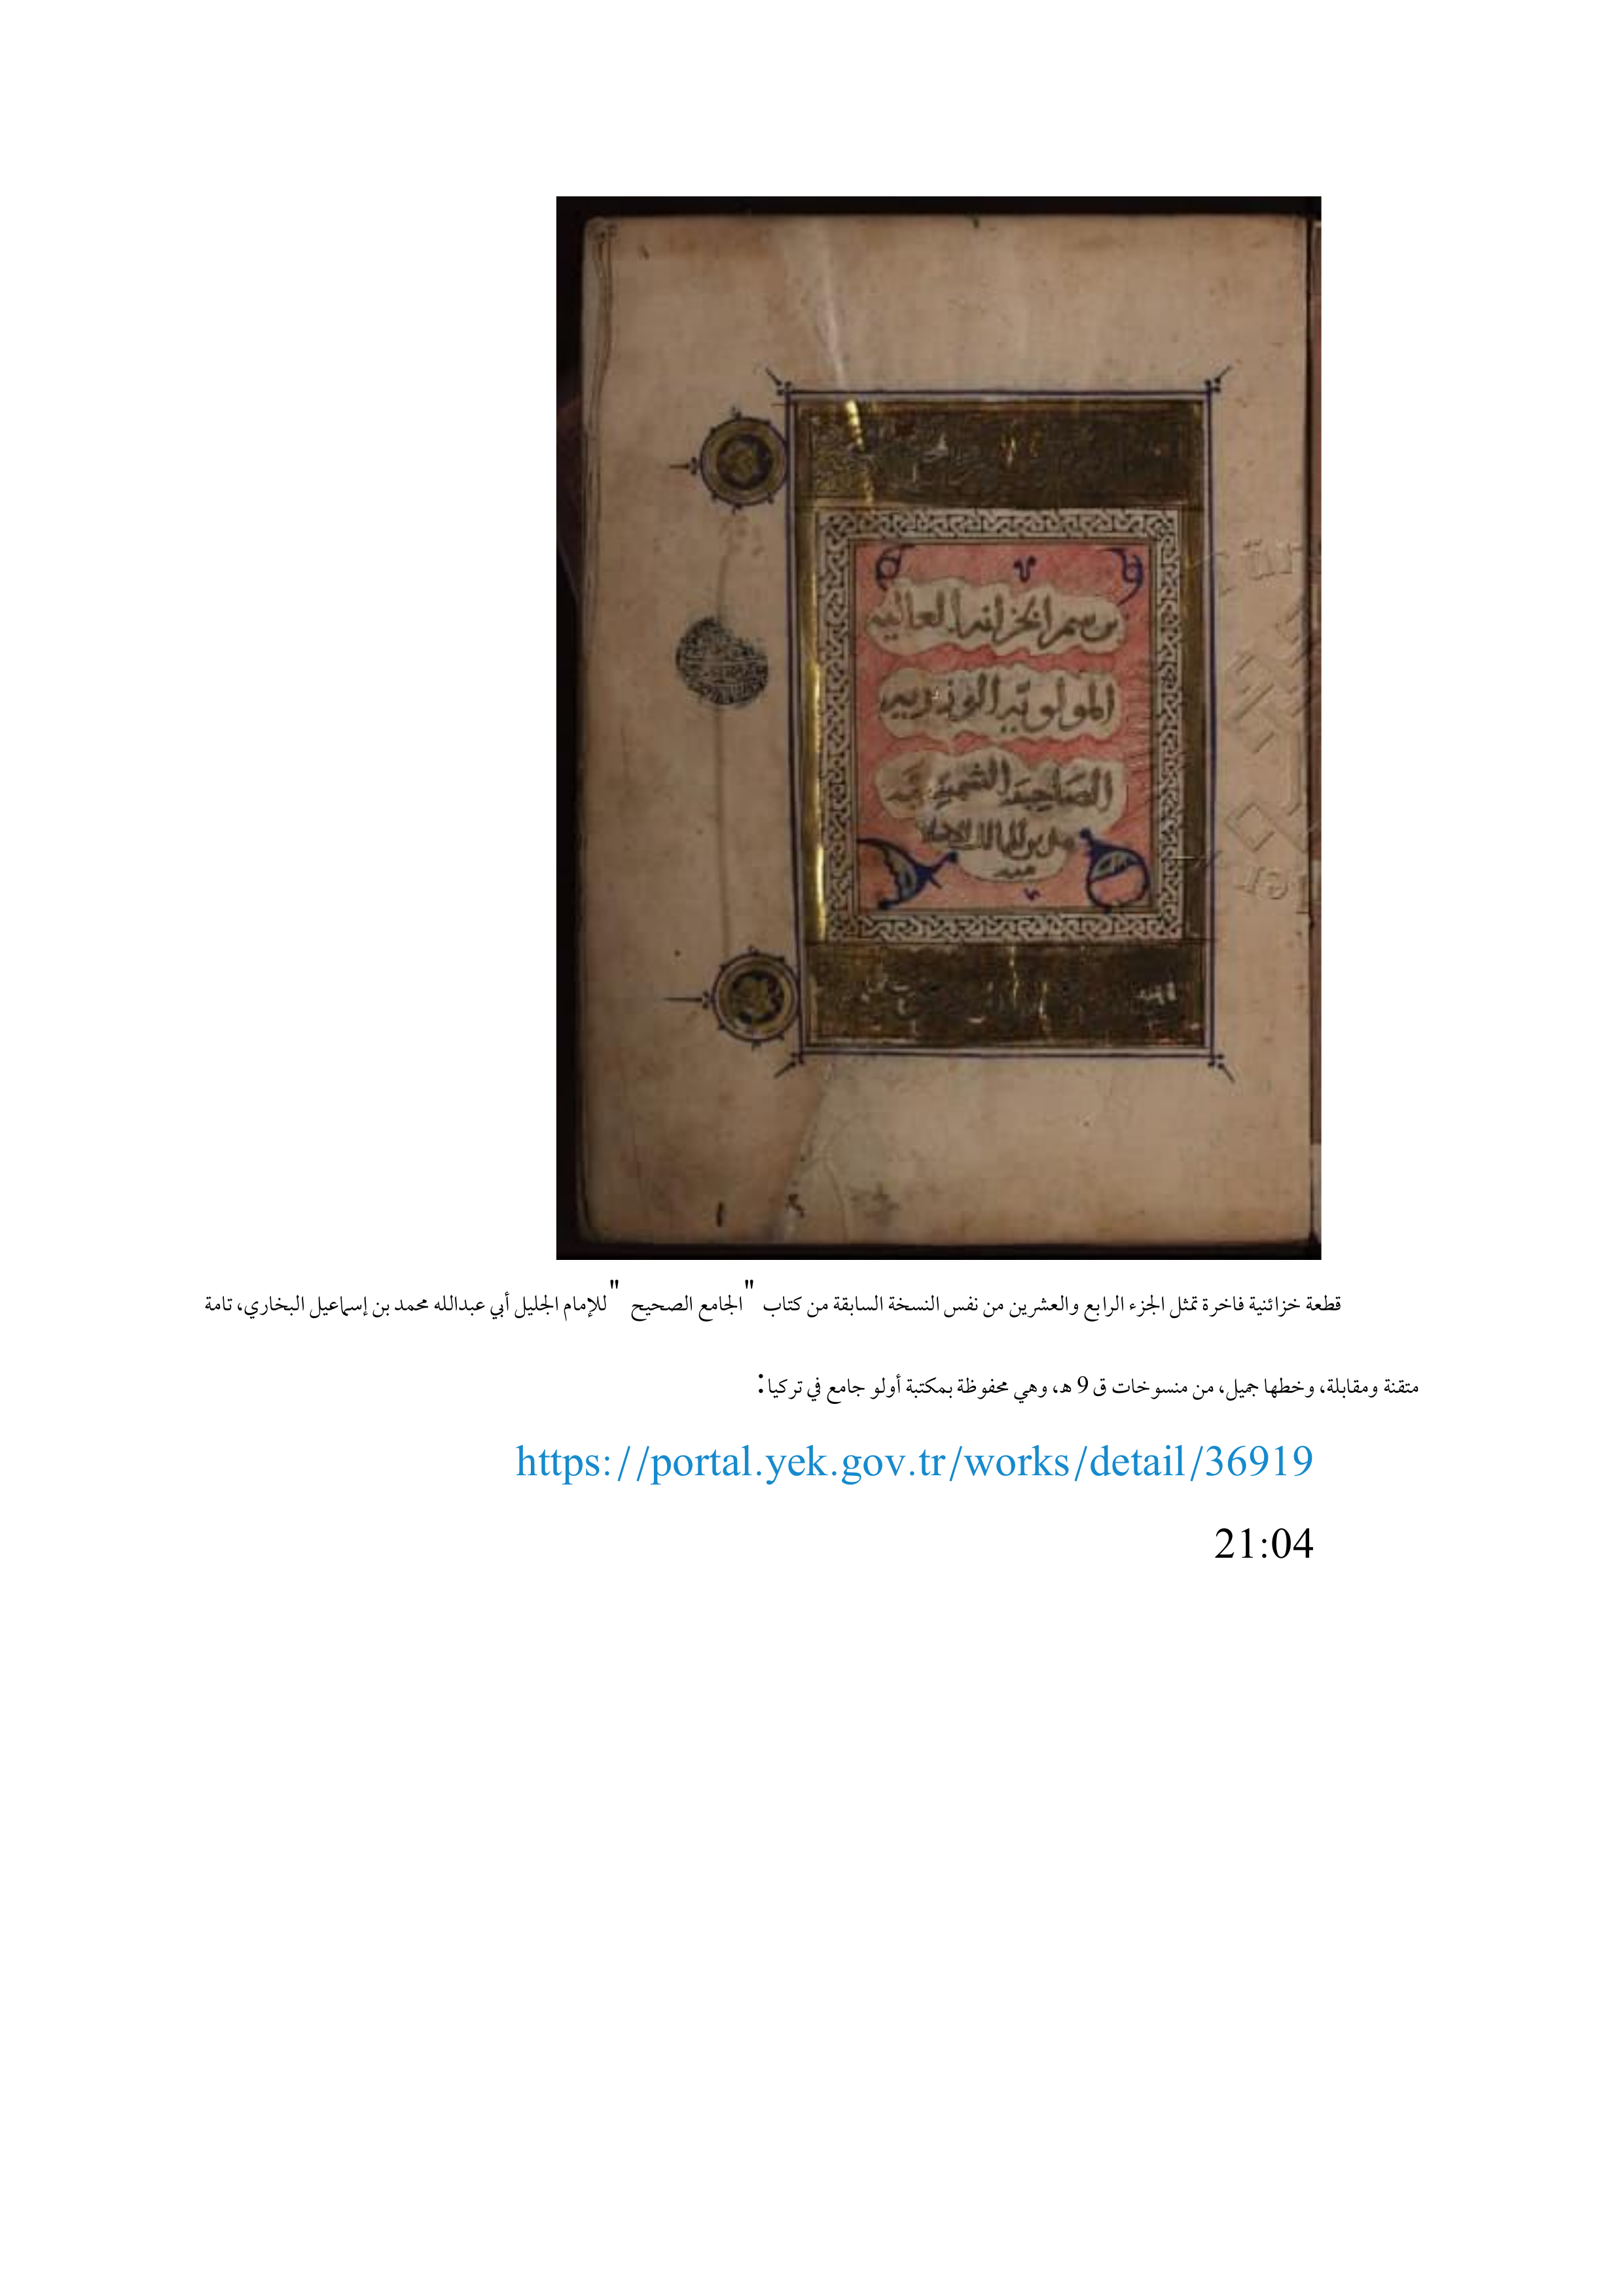 برسم الخزانة العالية
المولوية الوزيرية
الصاحبية الشمسية
قطعة خزائنية فاخرة تمثل الجزء الرابع والعشرين من نفس النسخة السابقة من كتاب "الجامع الصحيح" للإمام الجليل أبي عبدالله محمد بن إسماعيل البخاري، تامة
متقنة ومقابلة، وخطها جميل، من منسوخات ق 9 هـ، وهي محفوظة بمكتبة أولو جامع في تركيا:
https://portal.yek.gov.tr/works/detail/36919
21:04